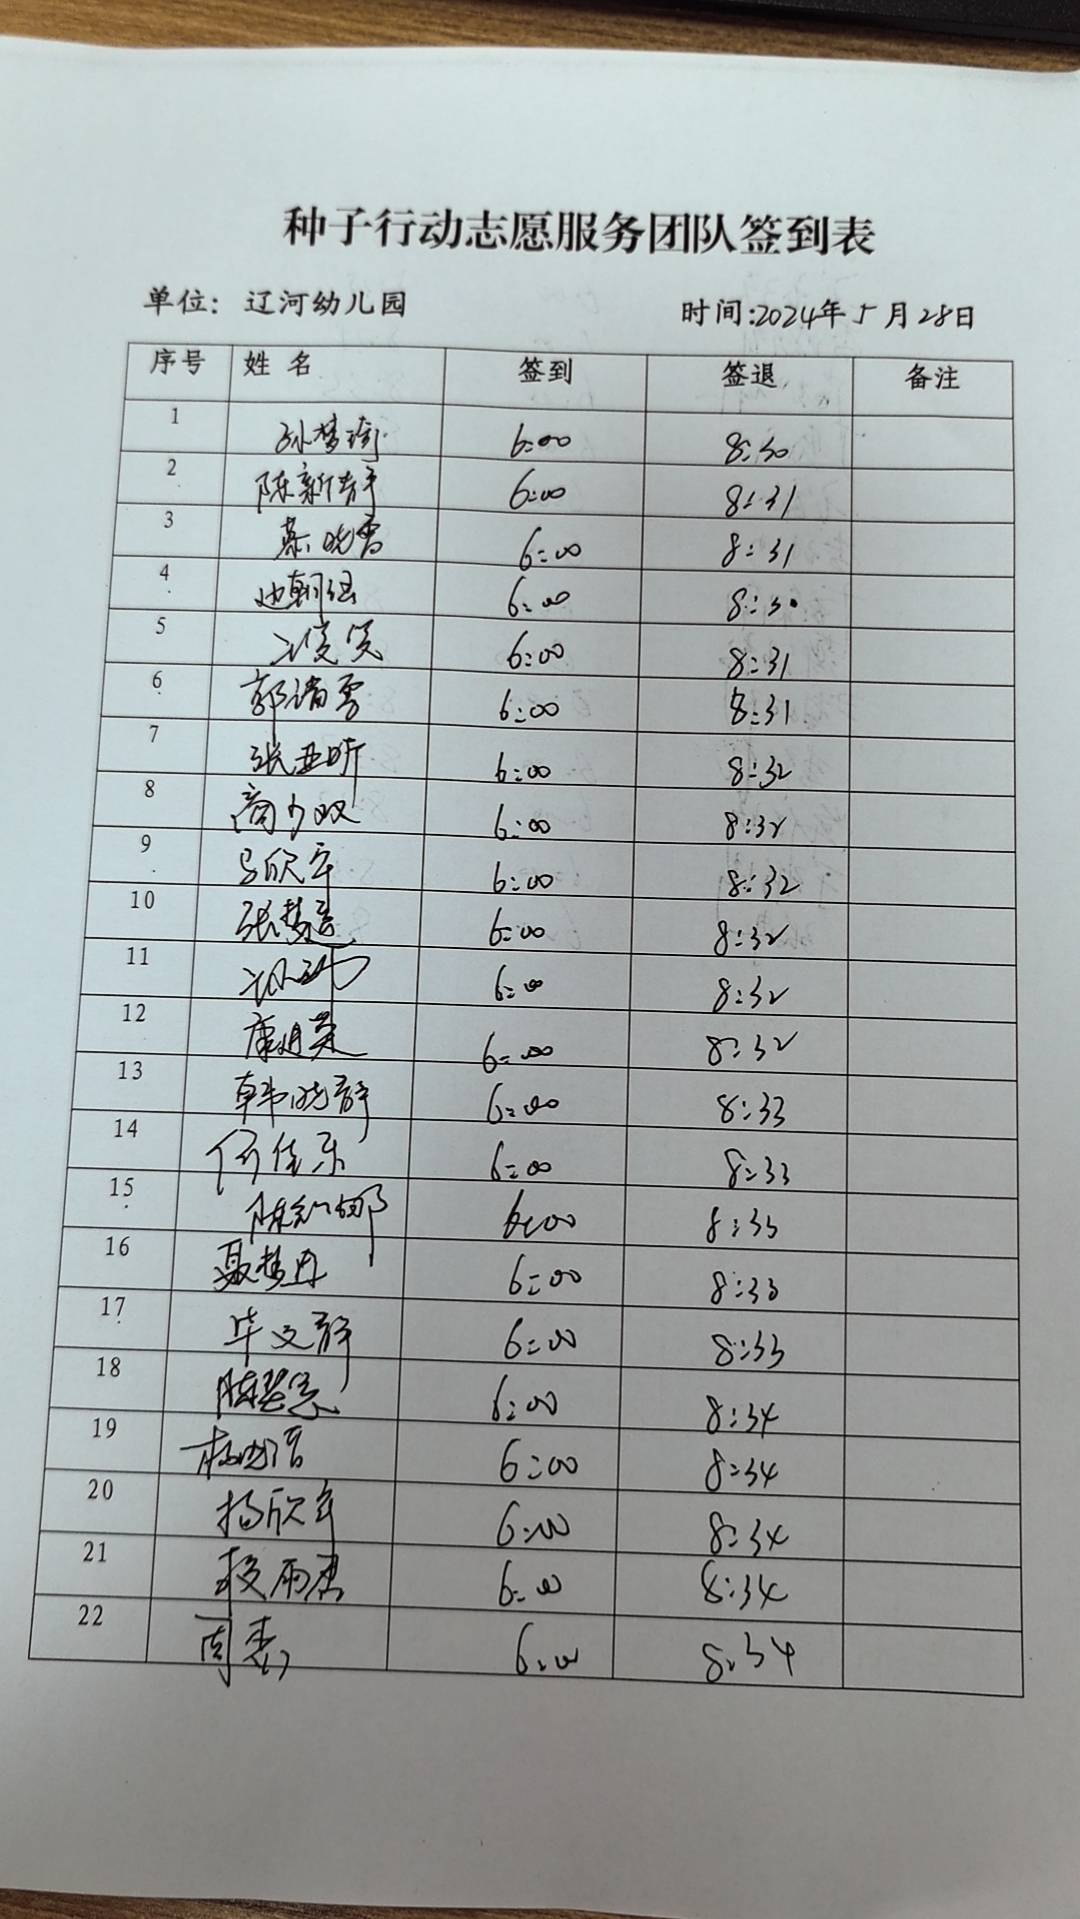 种子行动志愿服务团队签到表
单位：辽河幼儿园 时间：2024年5月28日
序号 姓名 签到 签退 备注
1 孙梦 6:00 8:30
2 陈新 6:00 8:31
3 晓雪 6:00 8:31
4 6:00 8:30
5 6:00 8:31
6 郭 6:00 8:31
7 张亚昕 6:00 8:32
8 商少双 6:00 8:32
9 马欣宇 6:00 8:32
10 张梦莲 6:00 8:32
11 6:00 8:32
12 康 6:00 8:32
13 韩晓静 6:00 8:33
14 何佳乐 6:00 8:33
15 陈 娜 6:00 8:33
16 聂梦丹 6:00 8:33
17 毕文静 6:00 8:33
18 陈 6:00 8:34
19 杨 6:00 8:34
20 杨欣宇 6:00 8:34
21 雨 6:00 8:34
22 周 6:00 8:34